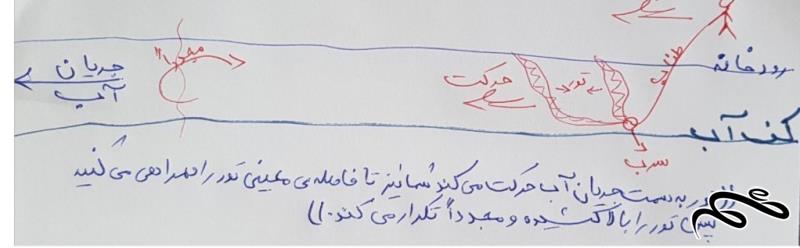 طناب
رودخانه
جریان
آب
حرکت
تور
کف آب
سرب
تور به سمت جریان آب حرکت می کند شما نیز تا فاصله ی معینی تور را همراهی می کنید
تور را بالا کشیده و مجدداً تکرار می کنید.))